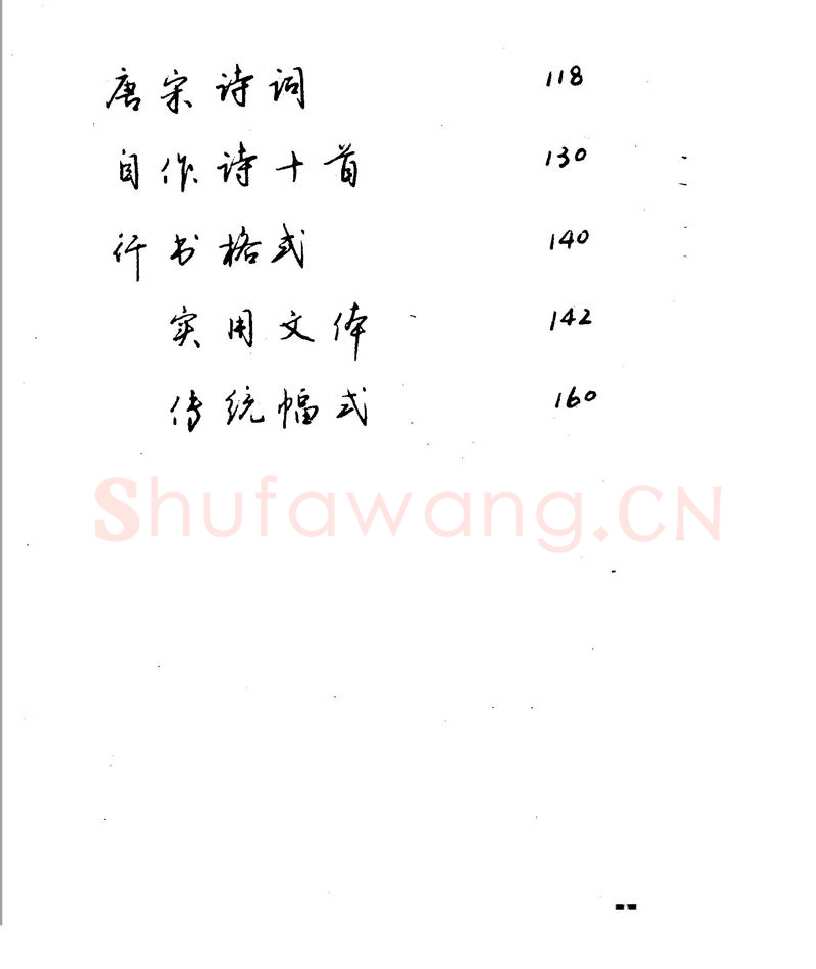 唐宋诗词 118
自作诗十首 130
行书格式 140
实用文体 142
传统幅式 160
Shufawang.CN